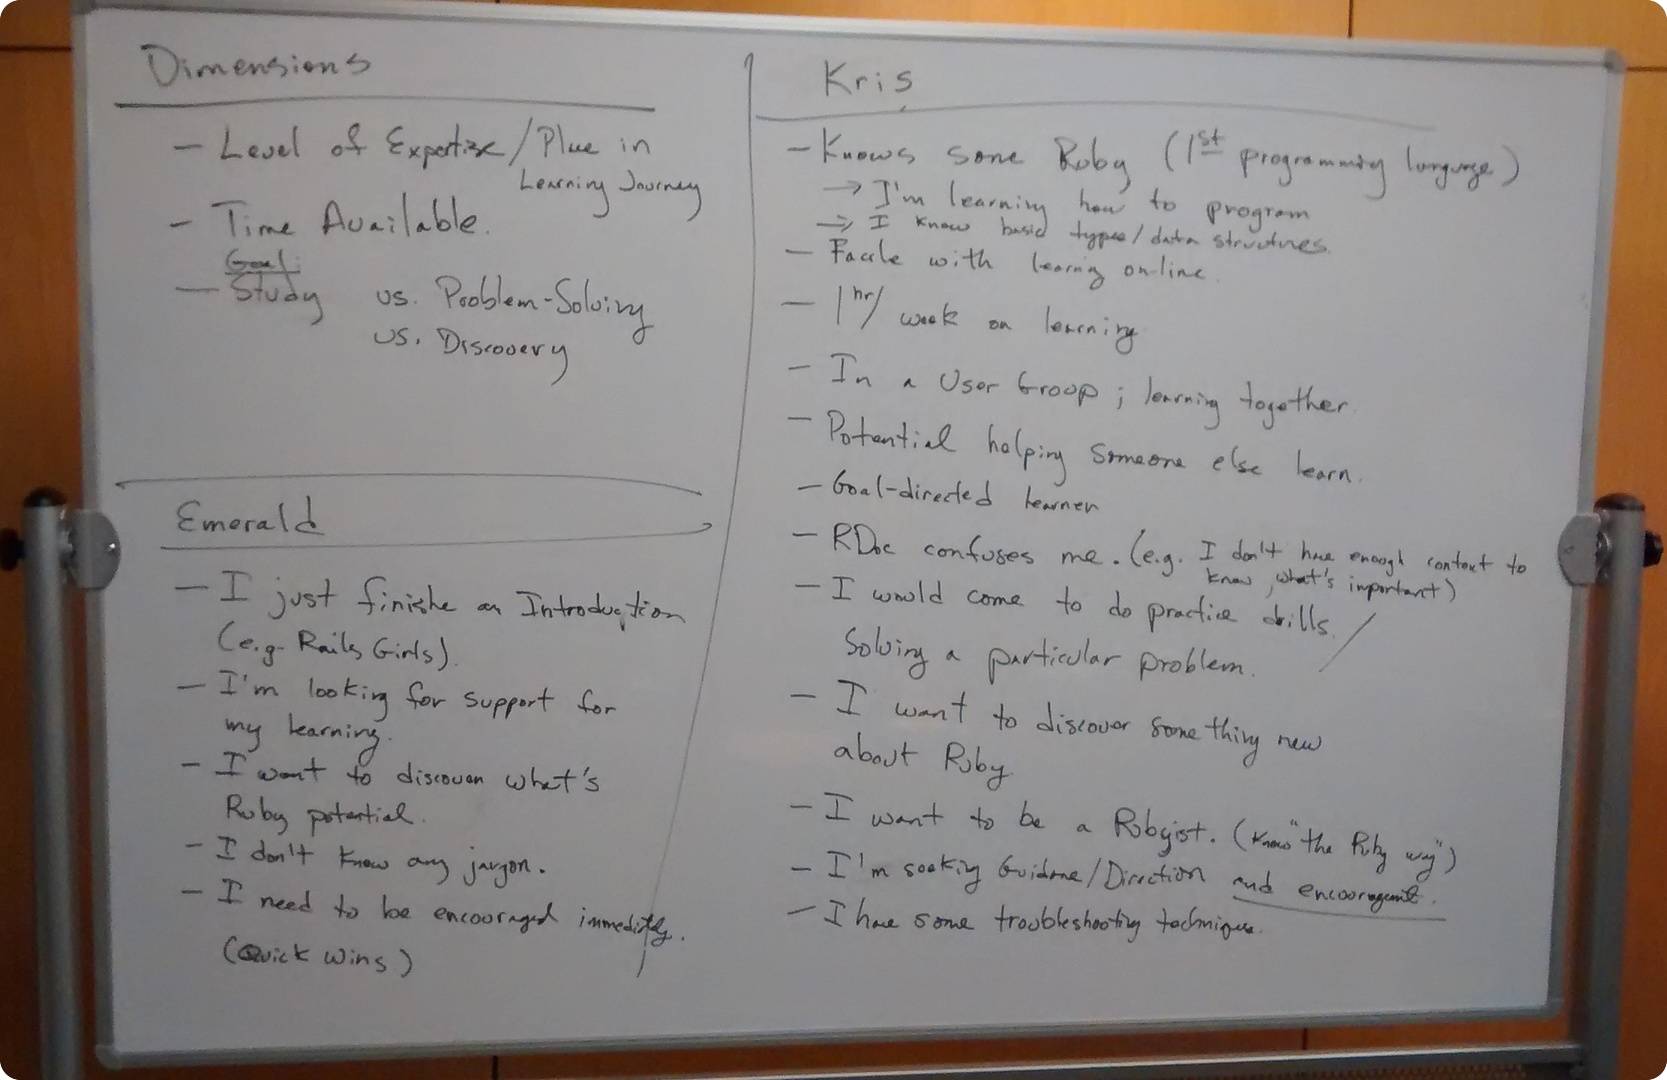 Dimensions
- Level of Expertise/Place in
Learning Journey
- Time Available.
Goal:
- Study vs. Problem-Solving
vs. Discovery
Emerald
- I just finishe an Introduction
(e.g. Rails Girls).
- I'm looking for support for
my learning.
- I want to discover what's
Ruby potential.
- I don't know any jargon.
- I need to be encouraged immeditly.
(Quick wins)
Kris
- Knows some Ruby (1st programming language)
→ I'm learning how to program
→ I know basic types/data structures.
- Facile with learning on-line.
- 1 hr/week on learning
- In a User Group; learning together.
- Potential helping someone else learn.
- Goal-directed learner
- RDoc confuses me. (e.g. I don't have enough context to
know what's important)
- I would come to do practice drills /
Solving a particular problem.
- I want to discover something new
about Ruby
- I want to be a Rubyist. (know "the Ruby way")
- I'm seeking Guidance/Direction and encouragemt.
- I have some troubleshooting techniques.